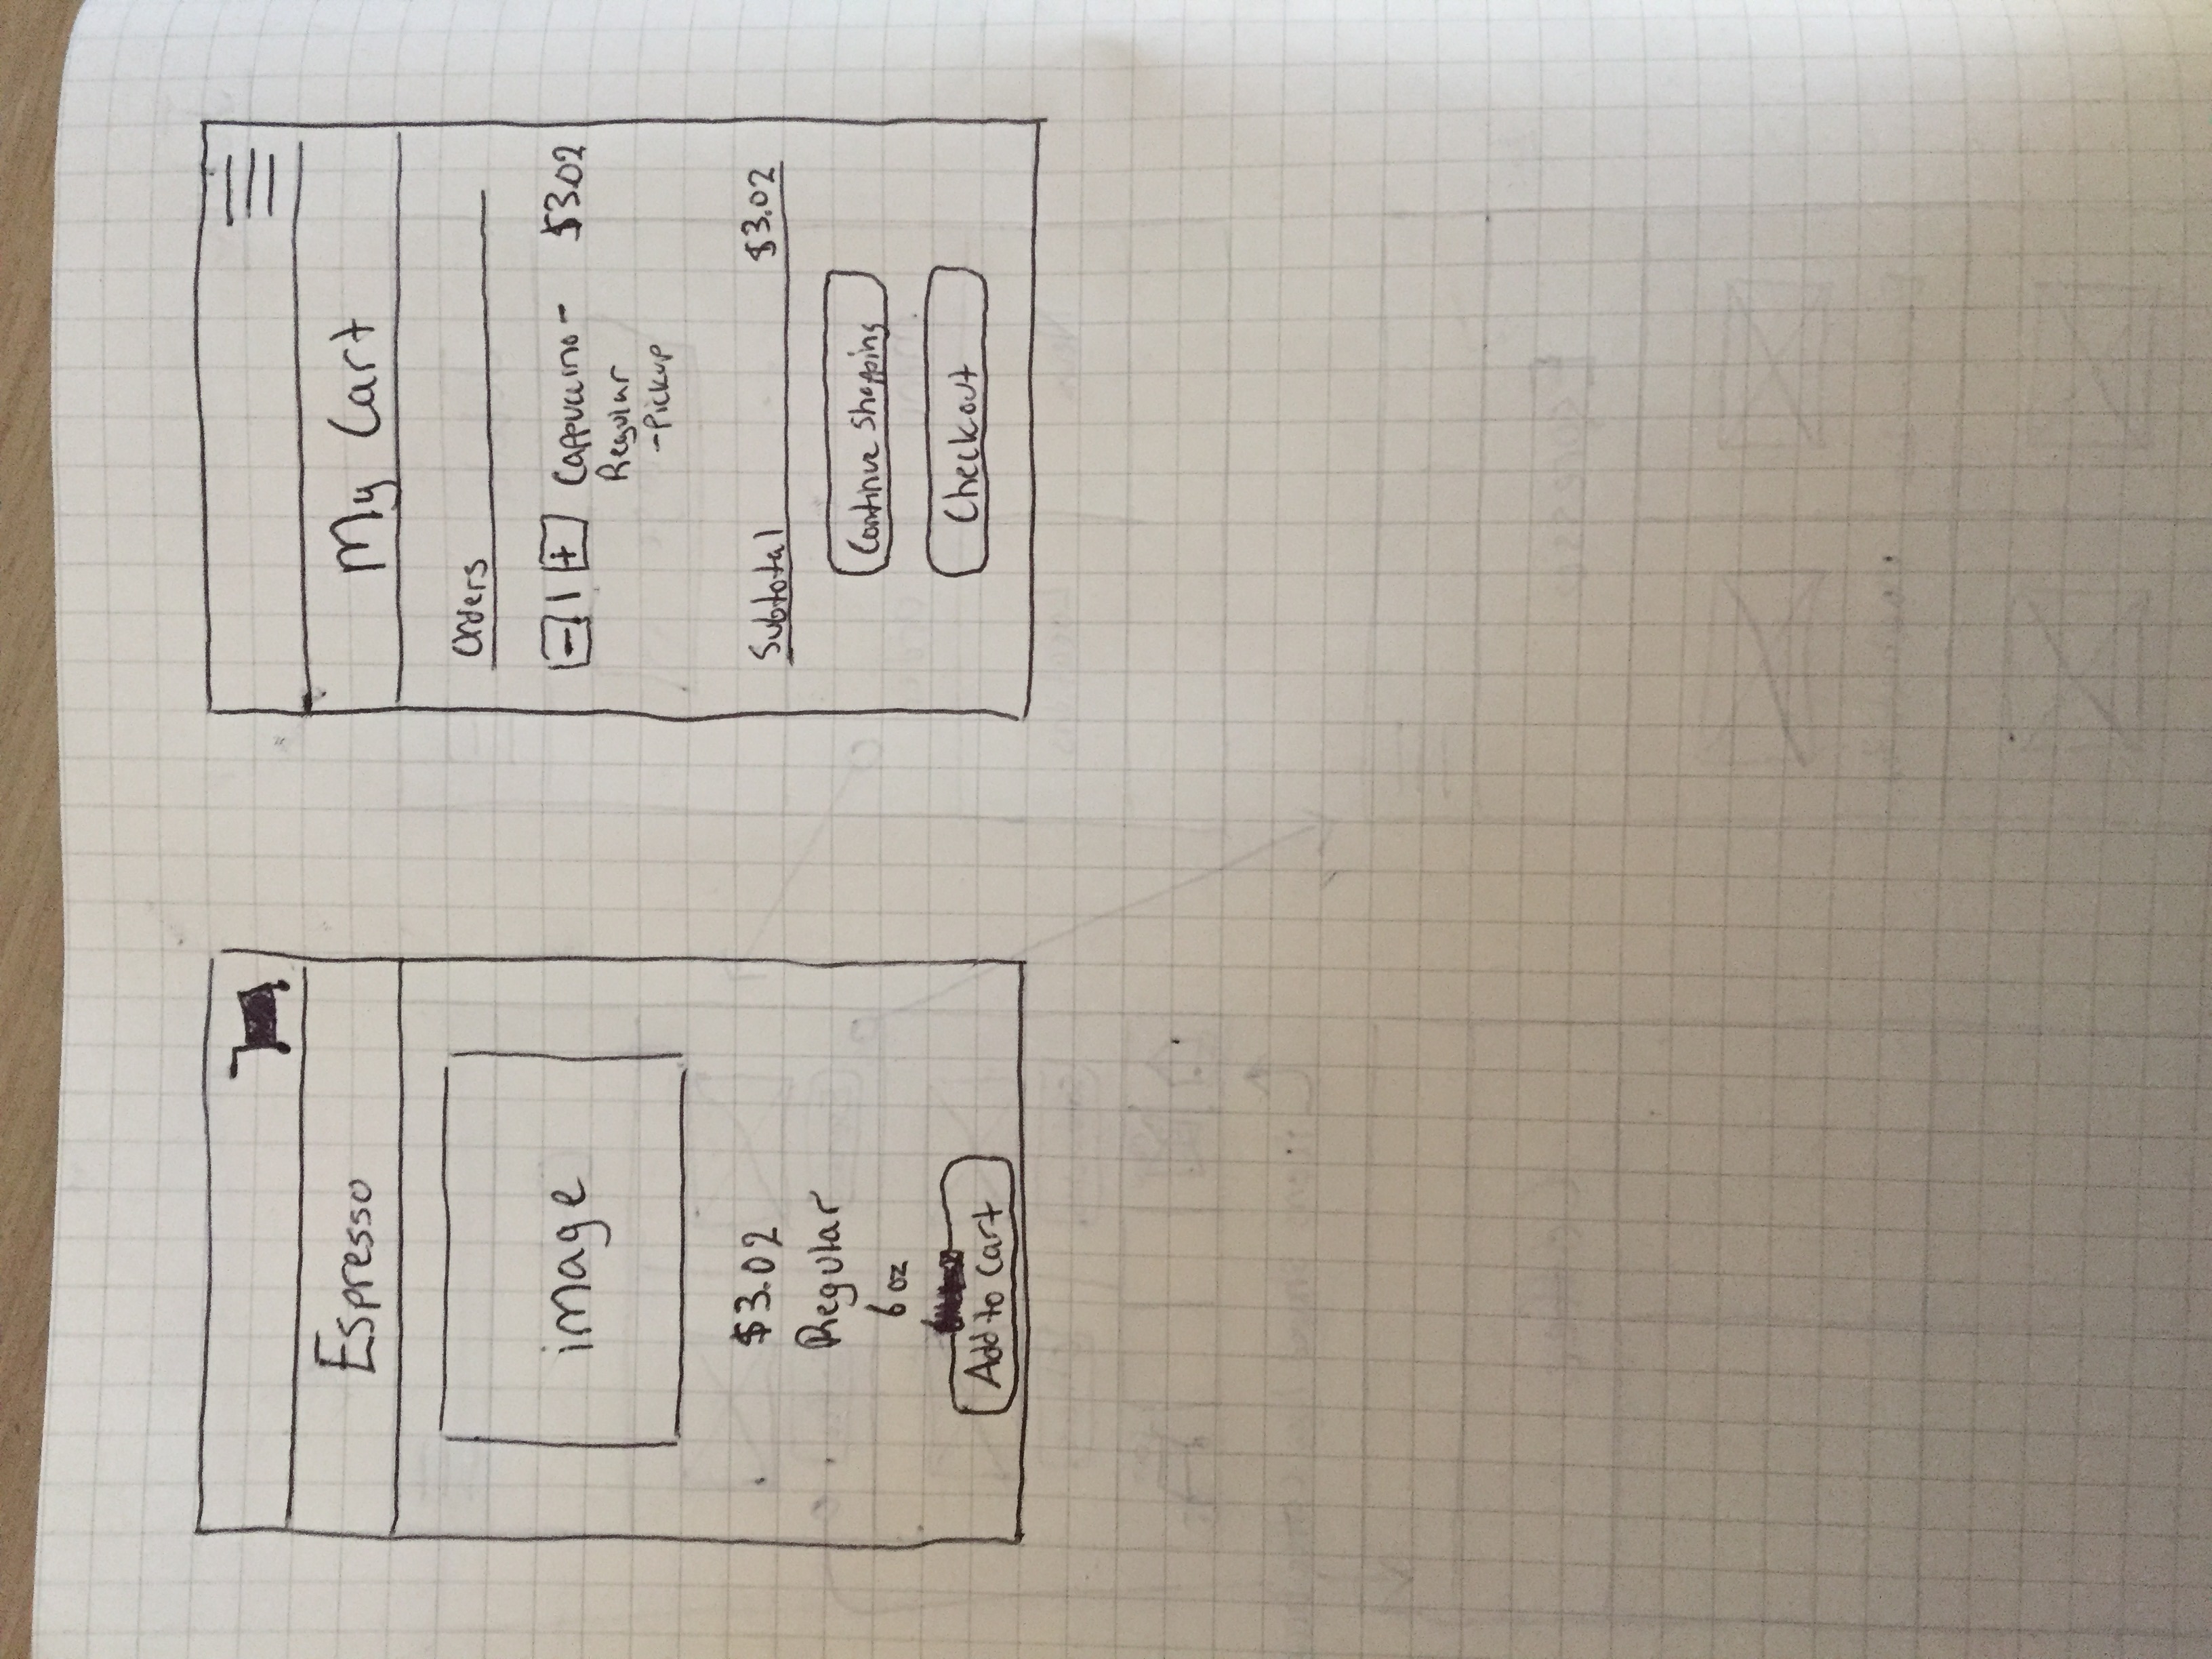 Espresso
image
$3.02
Regular
6 oz
Add to cart
My Cart
Orders
- 1 + Cappuccino - $3.02
Regular
- Pickup
Subtotal $3.02
Continue Shopping
Checkout
Espresso